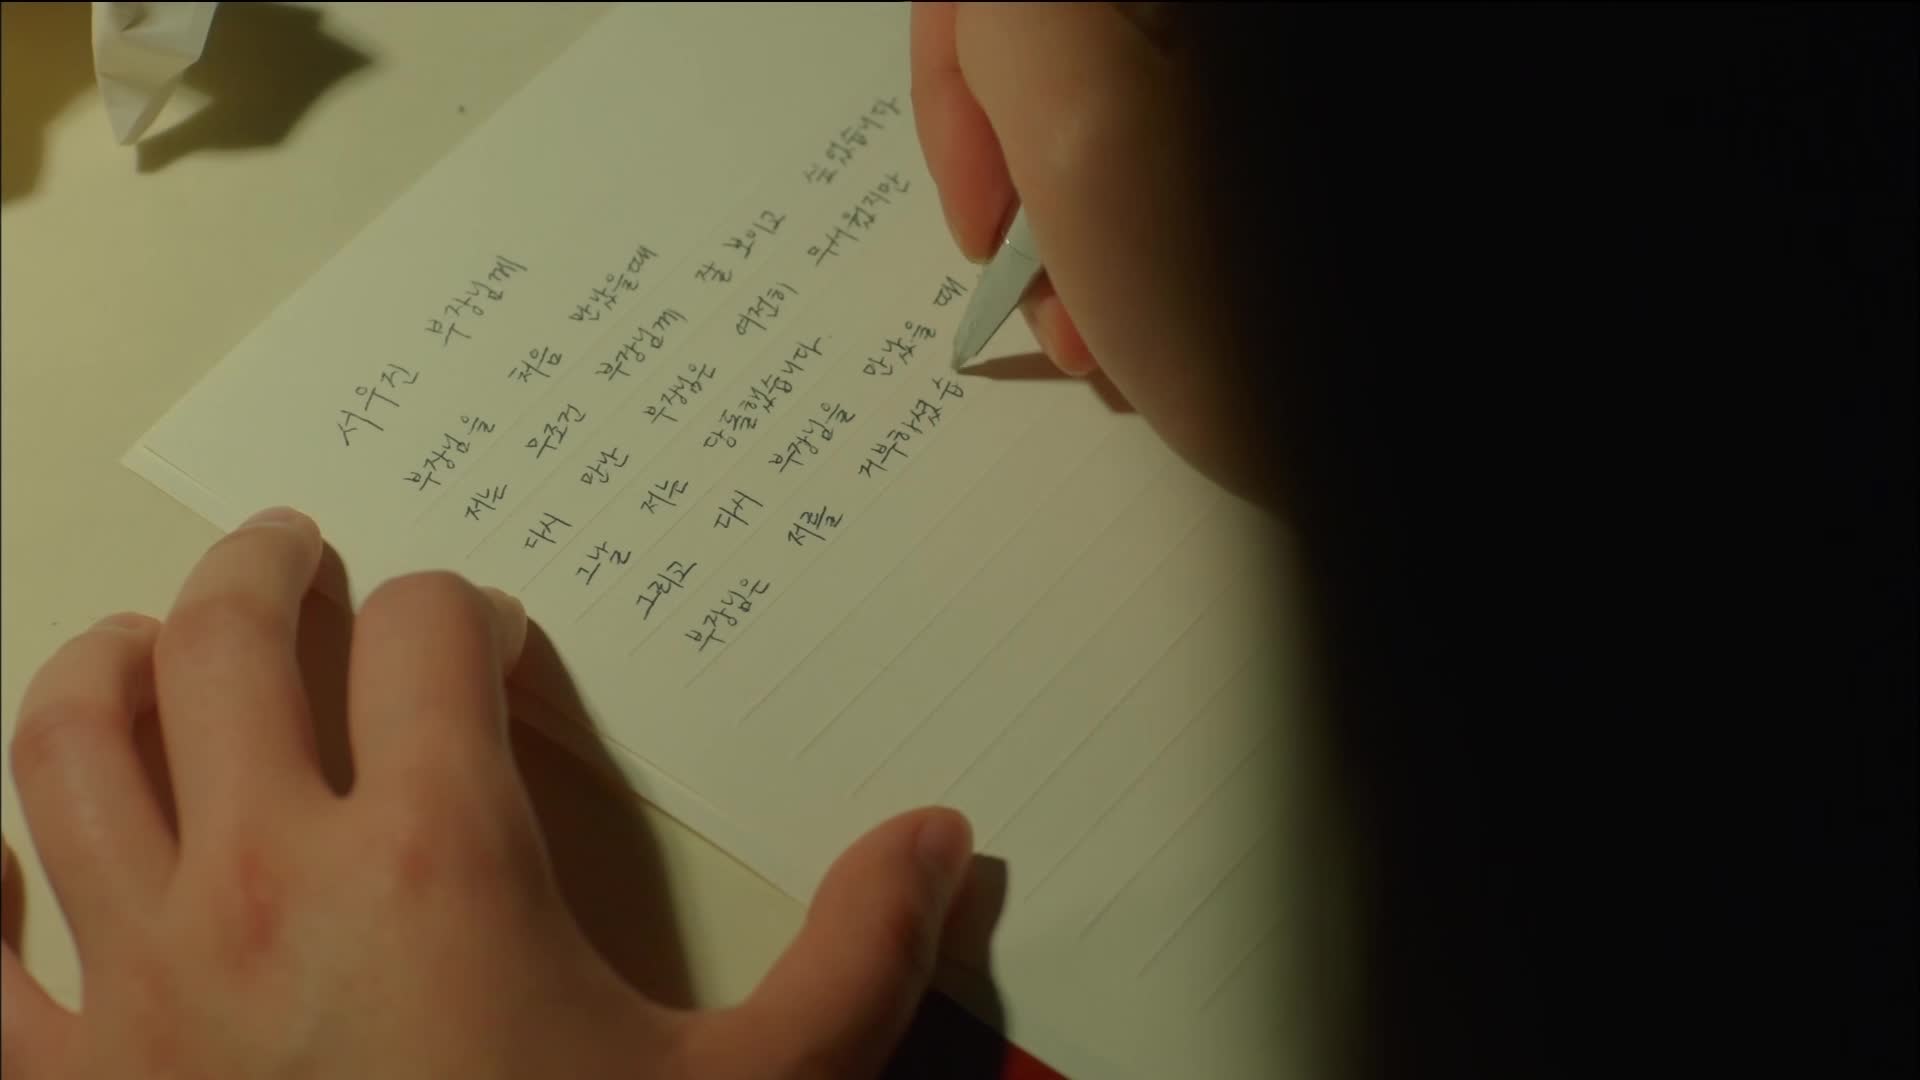 서우진 부장님께
부장님을 처음 만났을때
저는 무조건 부장님께 잘 보이고 싶었습니다
다시 만난 부장님은 여전히 무서웠지만
그날 저는 당돌했습니다.
그리고 다시 부장님을 만났을 때
부장님은 저를 거부하셨습